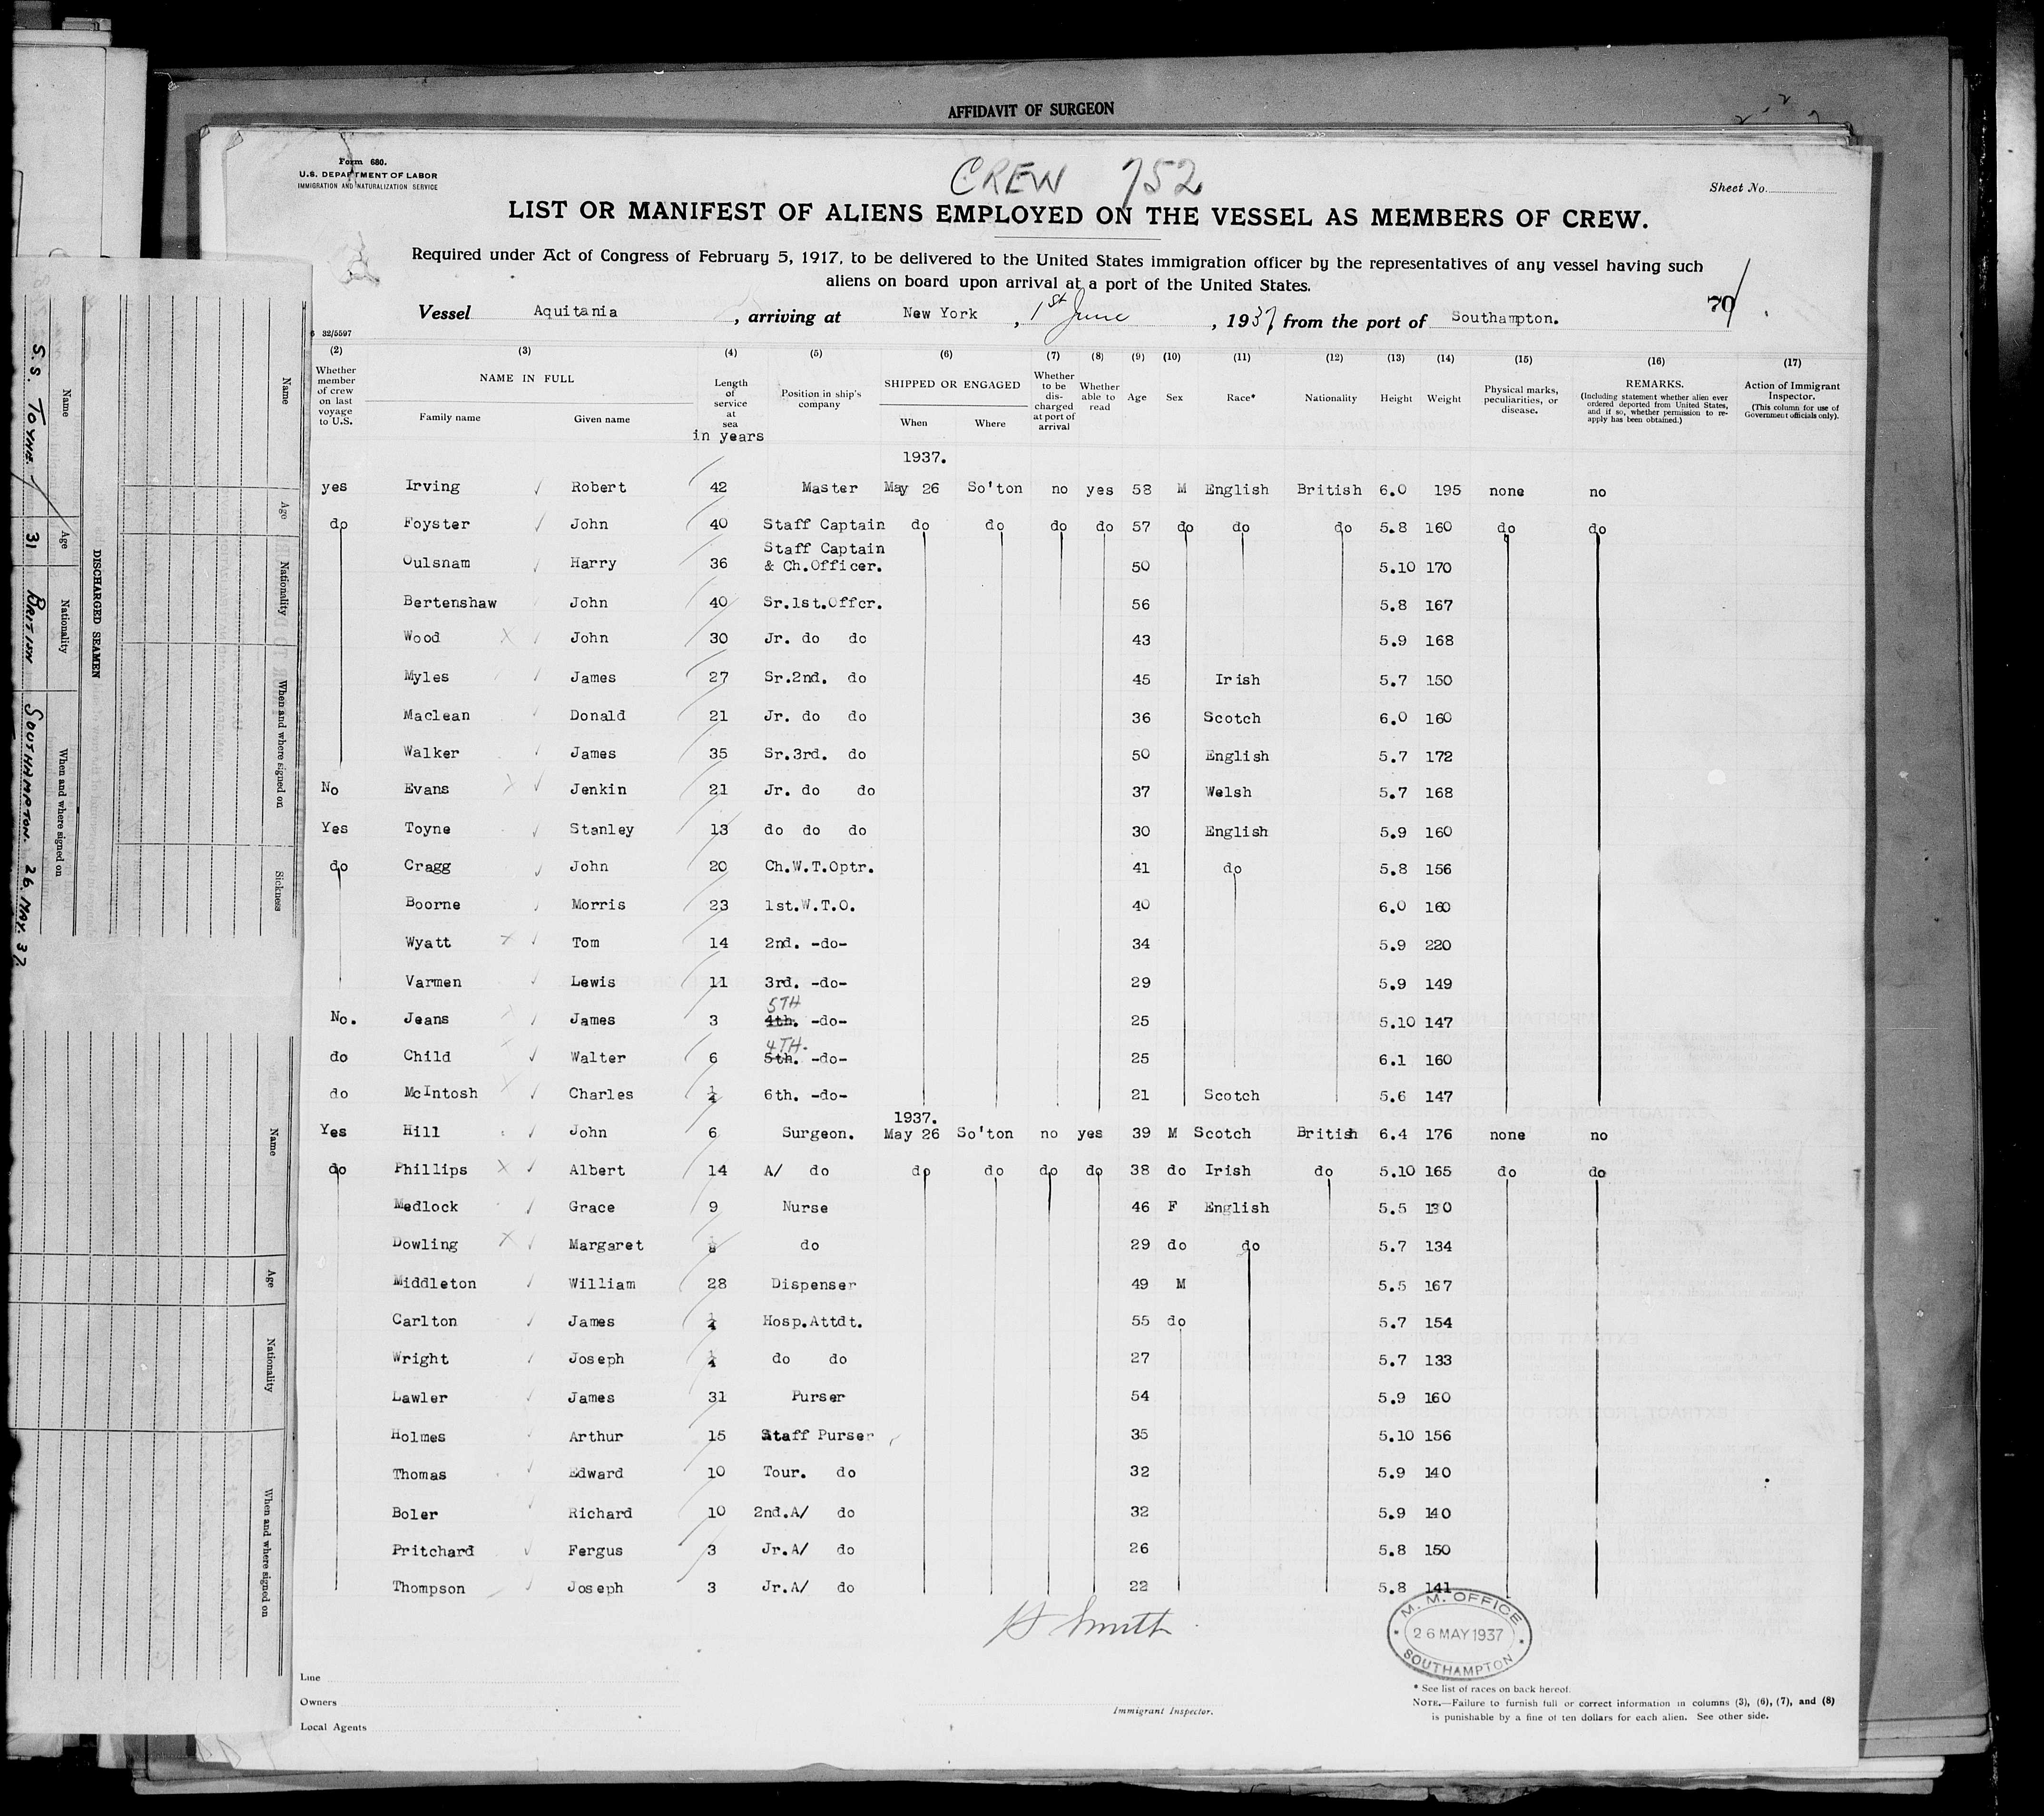 AFFIDAVIT OF SURGEON
Form 680.
U.S. DEPARTMENT OF LABOR
IMMIGRATION AND NATURALIZATION SERVICE
CREW 752
Sheet No.
LIST OR MANIFEST OF ALIENS EMPLOYED ON THE VESSEL AS MEMBERS OF CREW.
Required under Act of Congress of February 5, 1917, to be delivered to the United States immigration officer by the representatives of any vessel having such
aliens on board upon arrival at a port of the United States.
Vessel Aquitania, arriving at New York, 1st June, 1937 from the port of Southampton.
70
6 32/5597
(2) (3) (4) (5) (6) (7) (8) (9) (10) (11) (12) (13) (14) (15) (16) (17)
Whether member of crew on last voyage to U.S.
NAME IN FULL
Family name Given name
Length of service at sea
in years
Position in ship's company
SHIPPED OR ENGAGED
When Where
Whether to be discharged at port of arrival
Whether able to read
Age Sex Race* Nationality Height Weight
Physical marks, peculiarities, or disease.
REMARKS.
(Including statement whether alien ever ordered deported from United States, and if so, whether permission to re-apply has been obtained.)
Action of Immigrant Inspector.
(This column for use of Government officials only).
1937.
yes Irving Robert 42 Master May 26 So'ton no yes 58 M English British 6.0 195 none no
do Foyster John 40 Staff Captain do do do do 57 do do do 5.8 160 do do
Oulsnam Harry 36 Staff Captain & Ch.Officer. 50 5.10 170
Bertenshaw John 40 Sr.1st.Offcr. 56 5.8 167
Wood John 30 Jr. do do 43 5.9 168
Myles James 27 Sr.2nd. do 45 Irish 5.7 150
Maclean Donald 21 Jr. do do 36 Scotch 6.0 160
Walker James 35 Sr.3rd. do 50 English 5.7 172
No Evans Jenkin 21 Jr. do do 37 Welsh 5.7 168
Yes Toyne Stanley 13 do do do 30 English 5.9 160
do Cragg John 20 Ch.W.T.Optr. 41 do 5.8 156
Boorne Morris 23 1st.W.T.O. 40 6.0 160
Wyatt Tom 14 2nd. -do- 34 5.9 220
Varmen Lewis 11 3rd. -do- 29 5.9 149
No. Jeans James 3 4th. 5TH -do- 25 5.10 147
do Child Walter 6 5th. 4TH. -do- 25 6.1 160
do McIntosh Charles 1/4 6th. -do- 21 Scotch 5.6 147
1937.
Yes Hill John 6 Surgeon. May 26 So'ton no yes 39 M Scotch British 6.4 176 none no
do Phillips Albert 14 A/ do do do do do 38 do Irish do 5.10 165 do do
Medlock Grace 9 Nurse 46 F English 5.5 130
Dowling Margaret do 29 do do 5.7 134
Middleton William 28 Dispenser 49 M 5.5 167
Carlton James 1/4 Hosp.Attdt. 55 do 5.7 154
Wright Joseph 1/4 do do 27 5.7 133
Lawler James 31 Purser 54 5.9 160
Holmes Arthur 15 Staff Purser 35 5.10 156
Thomas Edward 10 Tour. do 32 5.9 140
Boler Richard 10 2nd.A/ do 32 5.9 140
Pritchard Fergus 3 Jr.A/ do 26 5.8 150
Thompson Joseph 3 Jr.A/ do 22 5.8 141
H Smith
M. M. OFFICE
26 MAY 1937
SOUTHAMPTON
Line
Owners
Local Agents
Immigrant Inspector.
* See list of races on back hereof.
NOTE.—Failure to furnish full or correct information in columns (3), (6), (7), and (8)
is punishable by a fine of ten dollars for each alien. See other side.
DISCHARGED SEAMEN
Name Age Nationality When and where signed on
S.S. TOYNE 31 BRITISH SOUTHAMPTON. 26. MAY. 37.
Name Age Nationality When and where signed on Sickness
Name Age Nationality When and where signed on